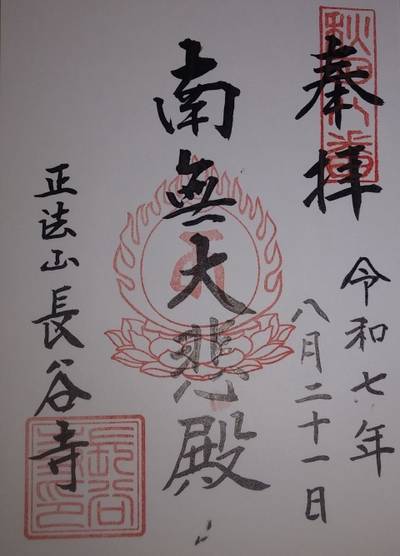 奉拝
令和七年
八月二十一日
南無大悲殿
正法山長谷寺